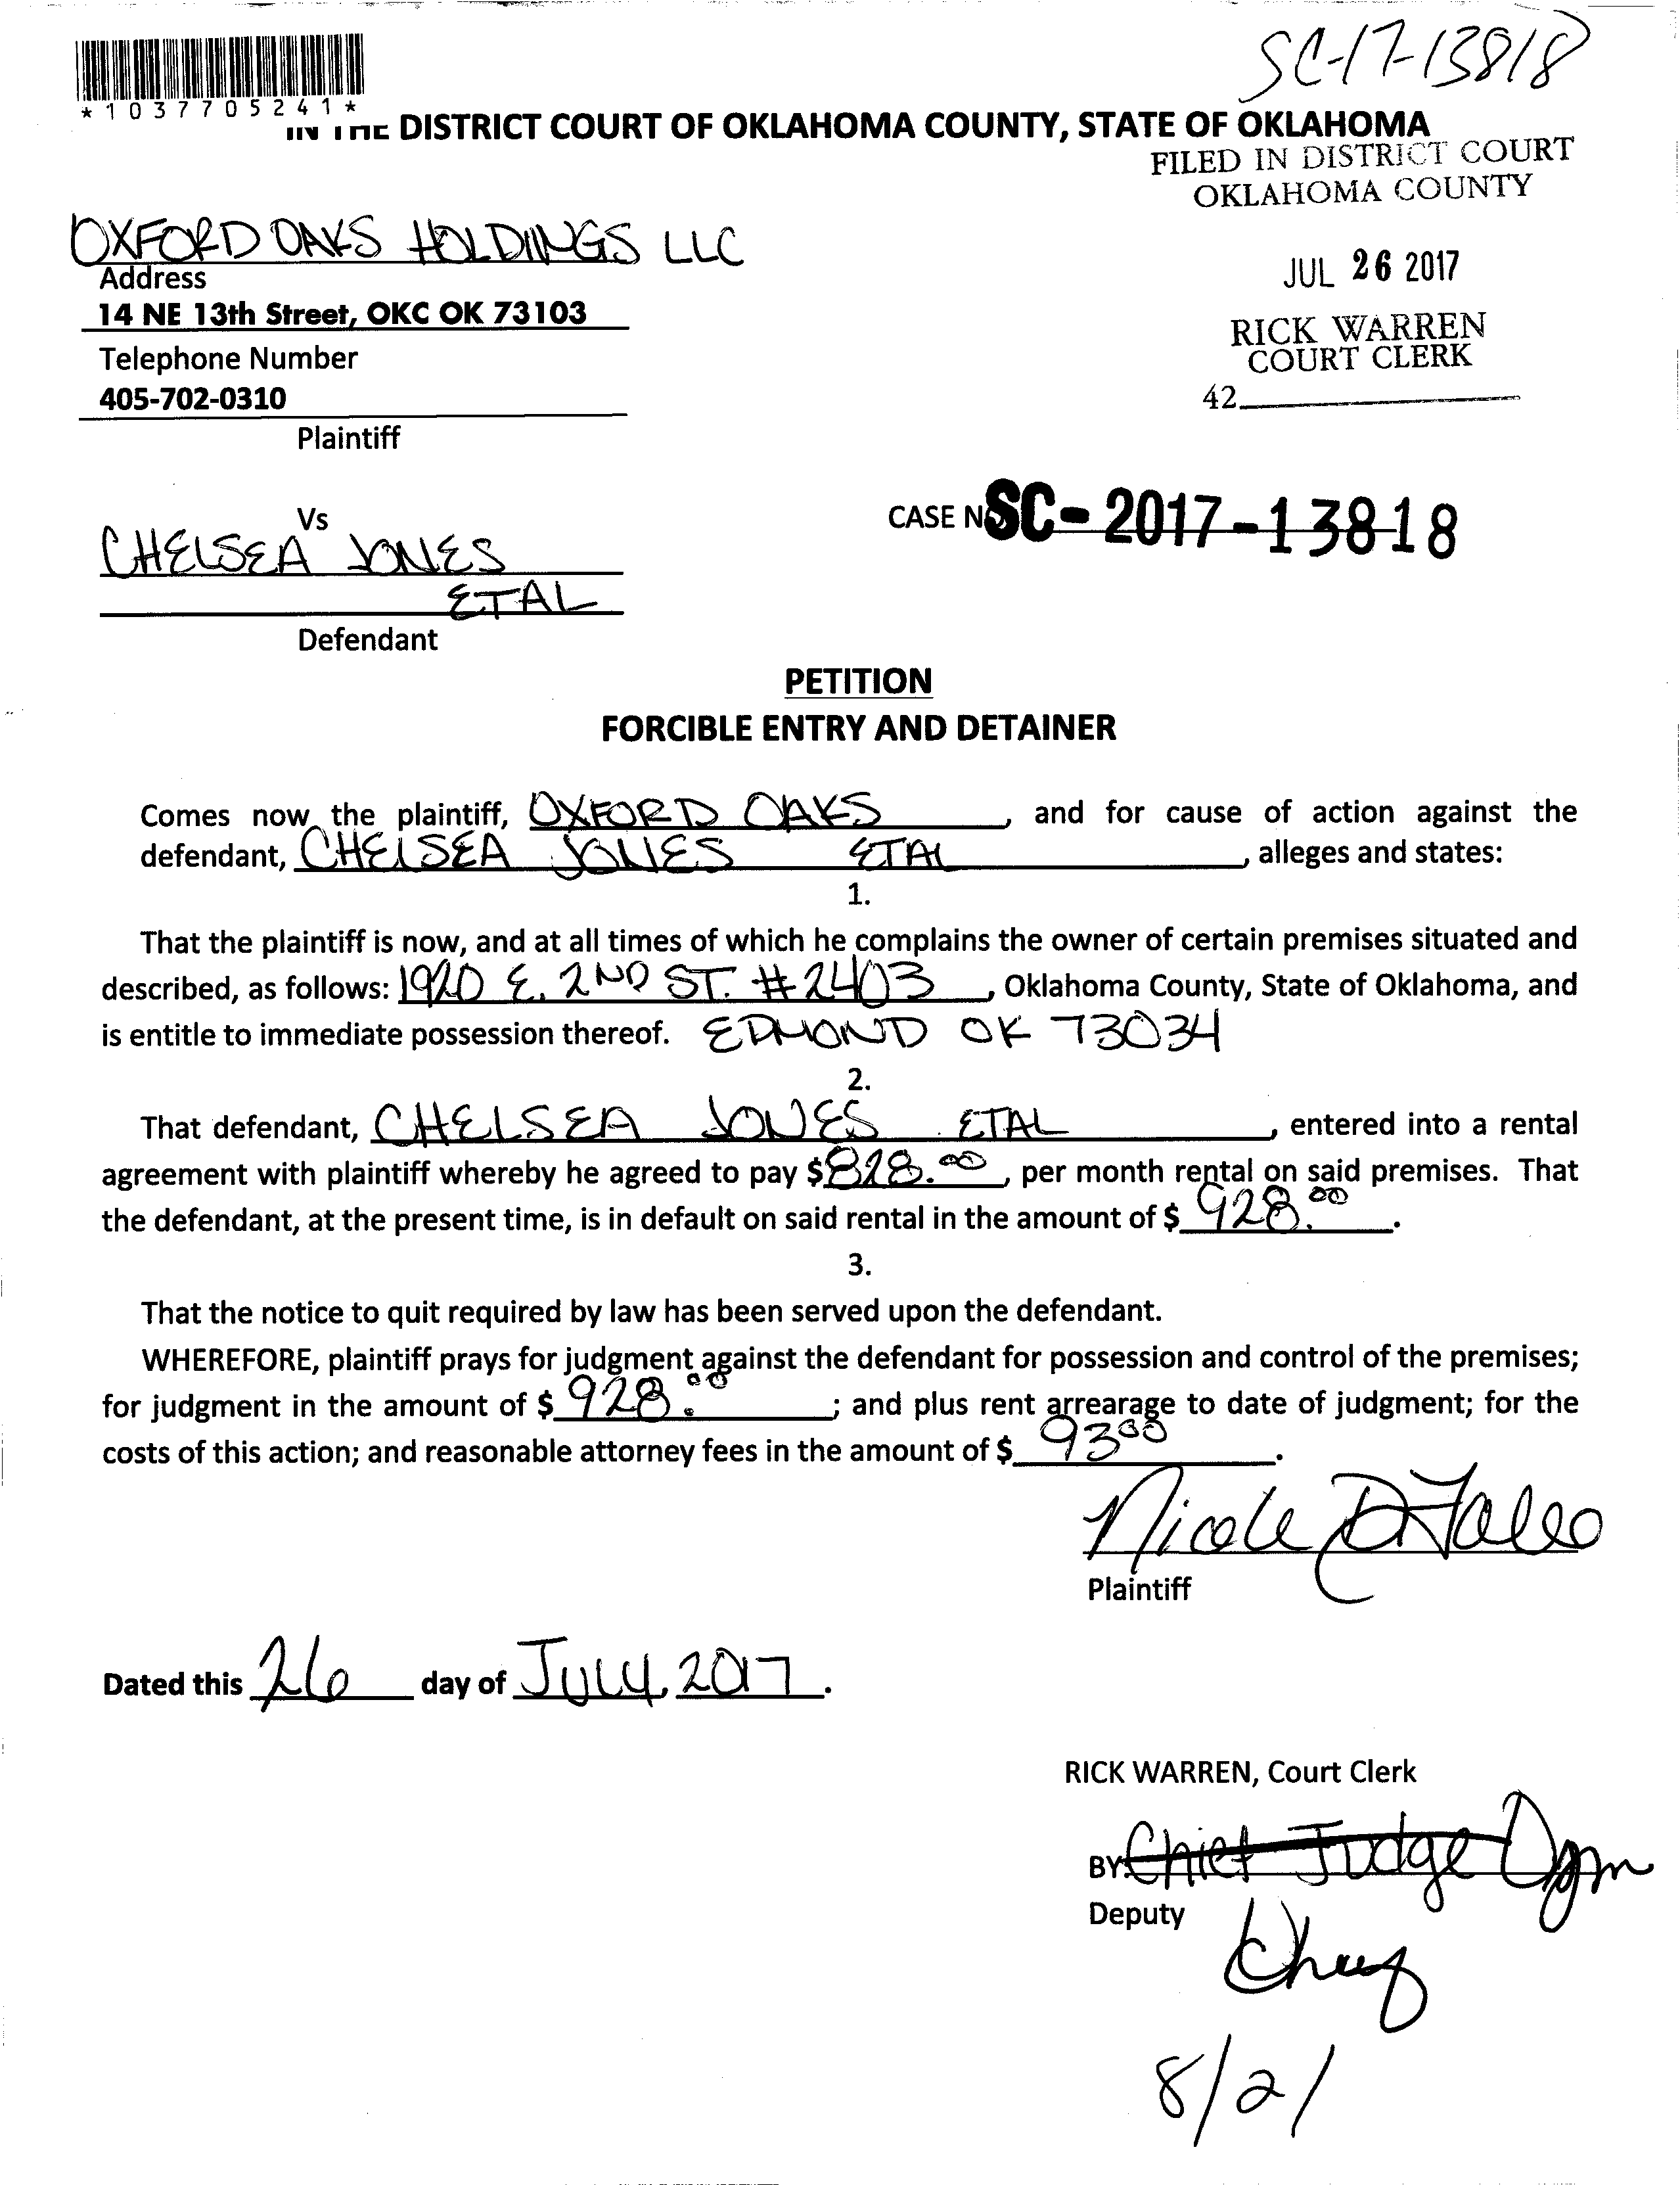 SC-17-13818
*1037705241*
IN THE DISTRICT COURT OF OKLAHOMA COUNTY, STATE OF OKLAHOMA
FILED IN DISTRICT COURT
OKLAHOMA COUNTY
OXFORD OAKS HOLDINGS LLC
Address
14 NE 13th Street, OKC OK 73103
Telephone Number
405-702-0310
Plaintiff
JUL 26 2017
RICK WARREN
COURT CLERK
42
Vs
CHELSEA JONES
ETAL
Defendant
CASE NO SC-2017-13818
PETITION
FORCIBLE ENTRY AND DETAINER
Comes now the plaintiff, OXFORD OAKS, and for cause of action against the
defendant, CHELSEA JONES ETAL, alleges and states:
1.
That the plaintiff is now, and at all times of which he complains the owner of certain premises situated and
described, as follows: 1920 E. 2ND ST. #2403, Oklahoma County, State of Oklahoma, and
is entitle to immediate possession thereof. EDMOND OK 73034
2.
That defendant, CHELSEA JONES ETAL, entered into a rental
agreement with plaintiff whereby he agreed to pay $828.00, per month rental on said premises. That
the defendant, at the present time, is in default on said rental in the amount of $ 928.00.
3.
That the notice to quit required by law has been served upon the defendant.
WHEREFORE, plaintiff prays for judgment against the defendant for possession and control of the premises;
for judgment in the amount of $ 928.00; and plus rent arrearage to date of judgment; for the
costs of this action; and reasonable attorney fees in the amount of $ 93 00.
Nicole
Plaintiff
Dated this 26 day of July, 2017.
RICK WARREN, Court Clerk
BY: Chief Judge
Deputy
8/2/